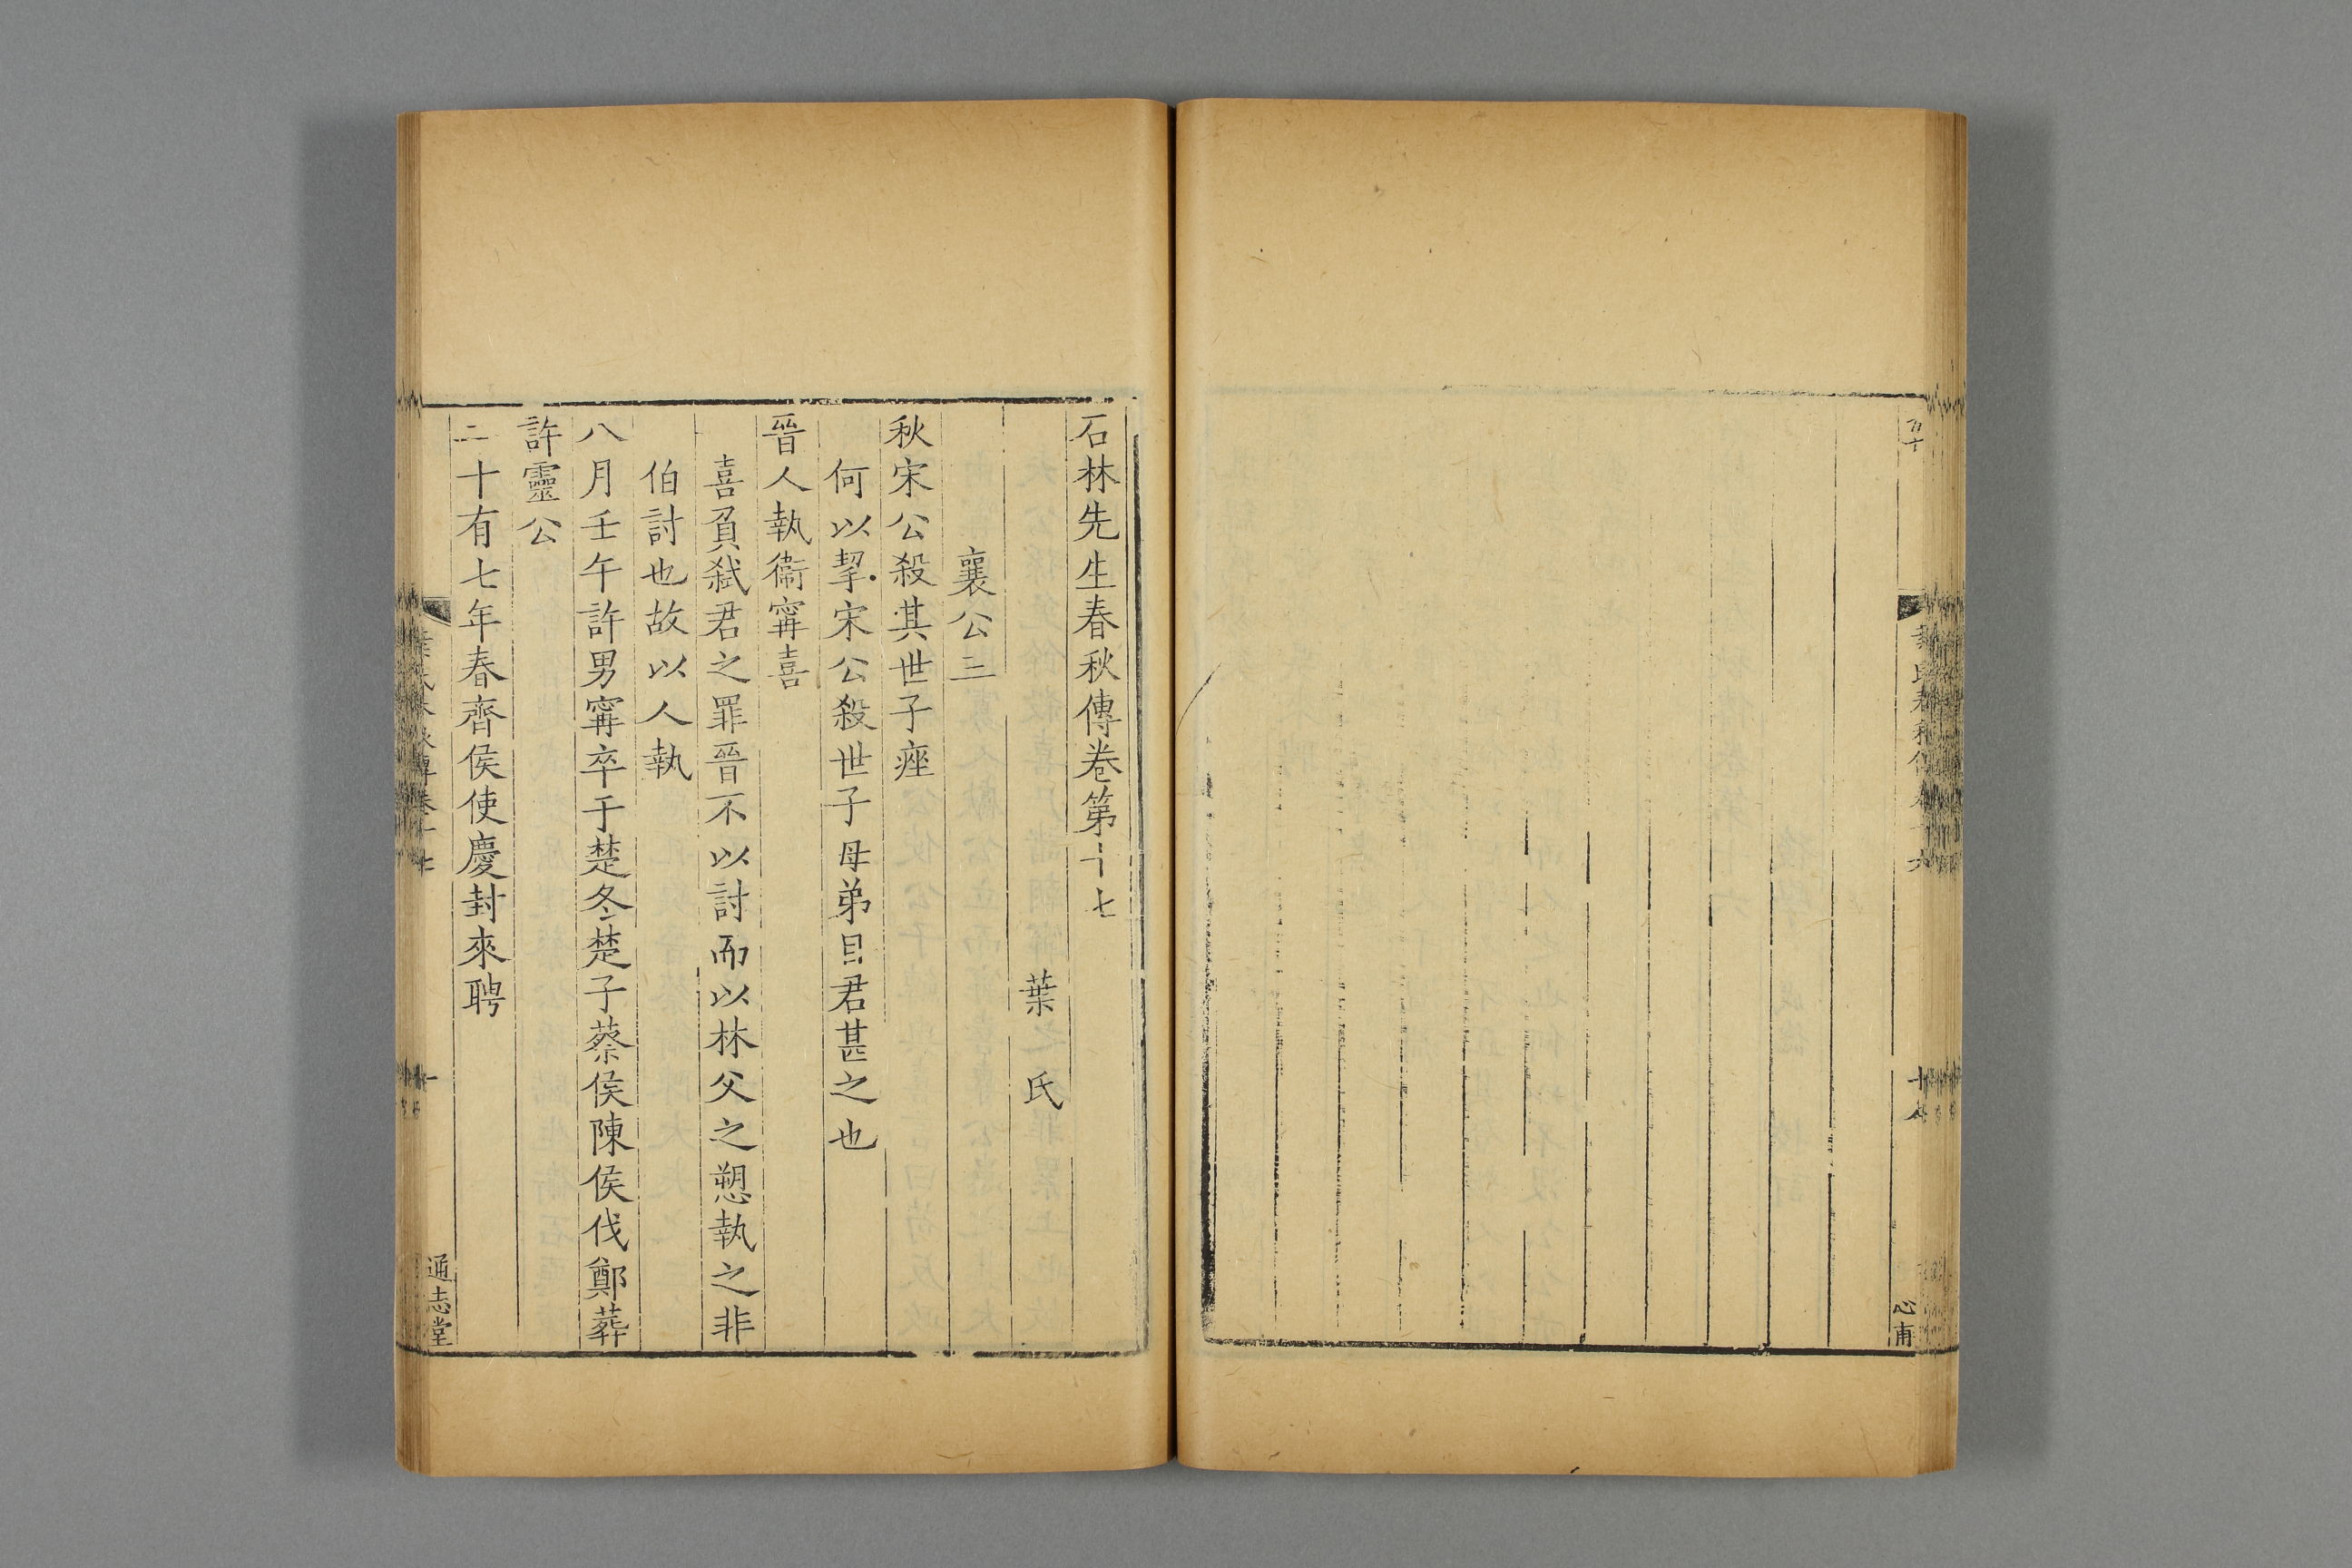 心甫
石林先生春秋傳卷第十七
葉氏
襄公三
秋宋公殺其世子痤
何以挈宋公殺世子母弟目君甚之也
晉人執衞甯喜
喜負弑君之罪晉不以討而以林父之愬執之非
伯討也故以人執
八月壬午許男甯卒于楚冬楚子蔡侯陳侯伐鄭葬
許靈公
二十有七年春齊侯使慶封來聘
通志堂